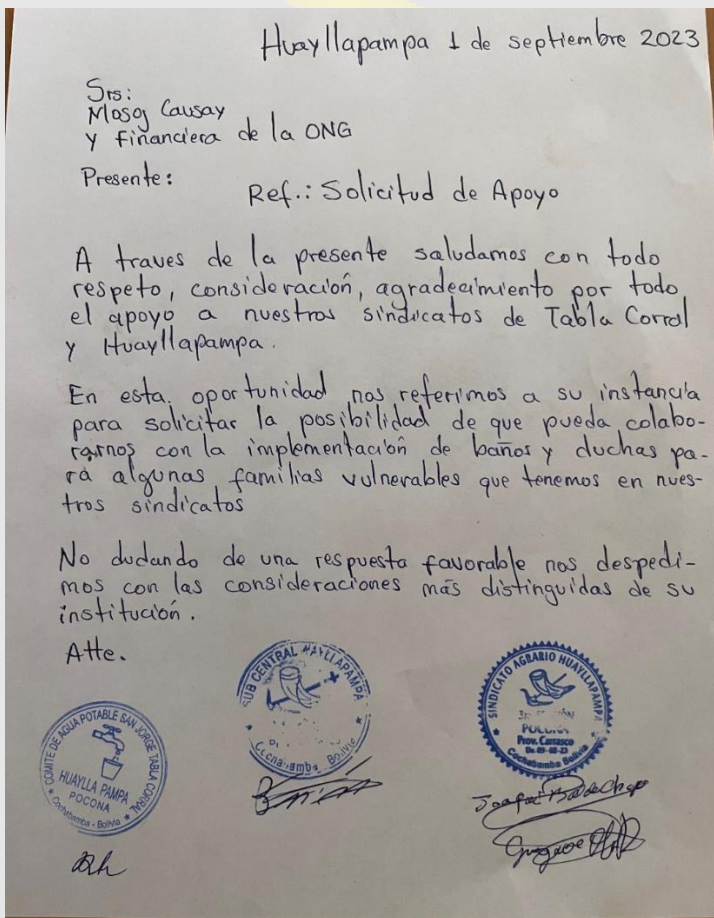 Huayllapampa 1 de septiembre 2023
Srs:
Mosoj Causay
y financiera de la ONG
Presente:
Ref.: Solicitud de Apoyo
A traves de la presente saludamos con todo
respeto, consideración, agradecimiento por todo
el apoyo a nuestros sindicatos de Tabla Corral
y Huayllapampa.
En esta. oportunidad nos referimos a su instancia
para solicitar la posibilidad de que pueda colabo-
rarnos con la implementación de baños y duchas pa-
ra algunas familias vulnerables que tenemos en nues-
tros sindicatos
No dudando de una respuesta favorable nos despedi-
mos con las consideraciones más distinguidas de su
institución.
Atte.
COMITE DE AGUA POTABLE SAN JORGE TABLA CORRAL
HUAYLLA PAMPA
POCONA
Cochabamba - Bolivia
SUB CENTRAL HAYLLAPAMPA
Bolivia
SINDICATO AGRARIO HUAYLLAPAMPA
POCONA
Prov. Carrasco
Cochabamba Bolivia